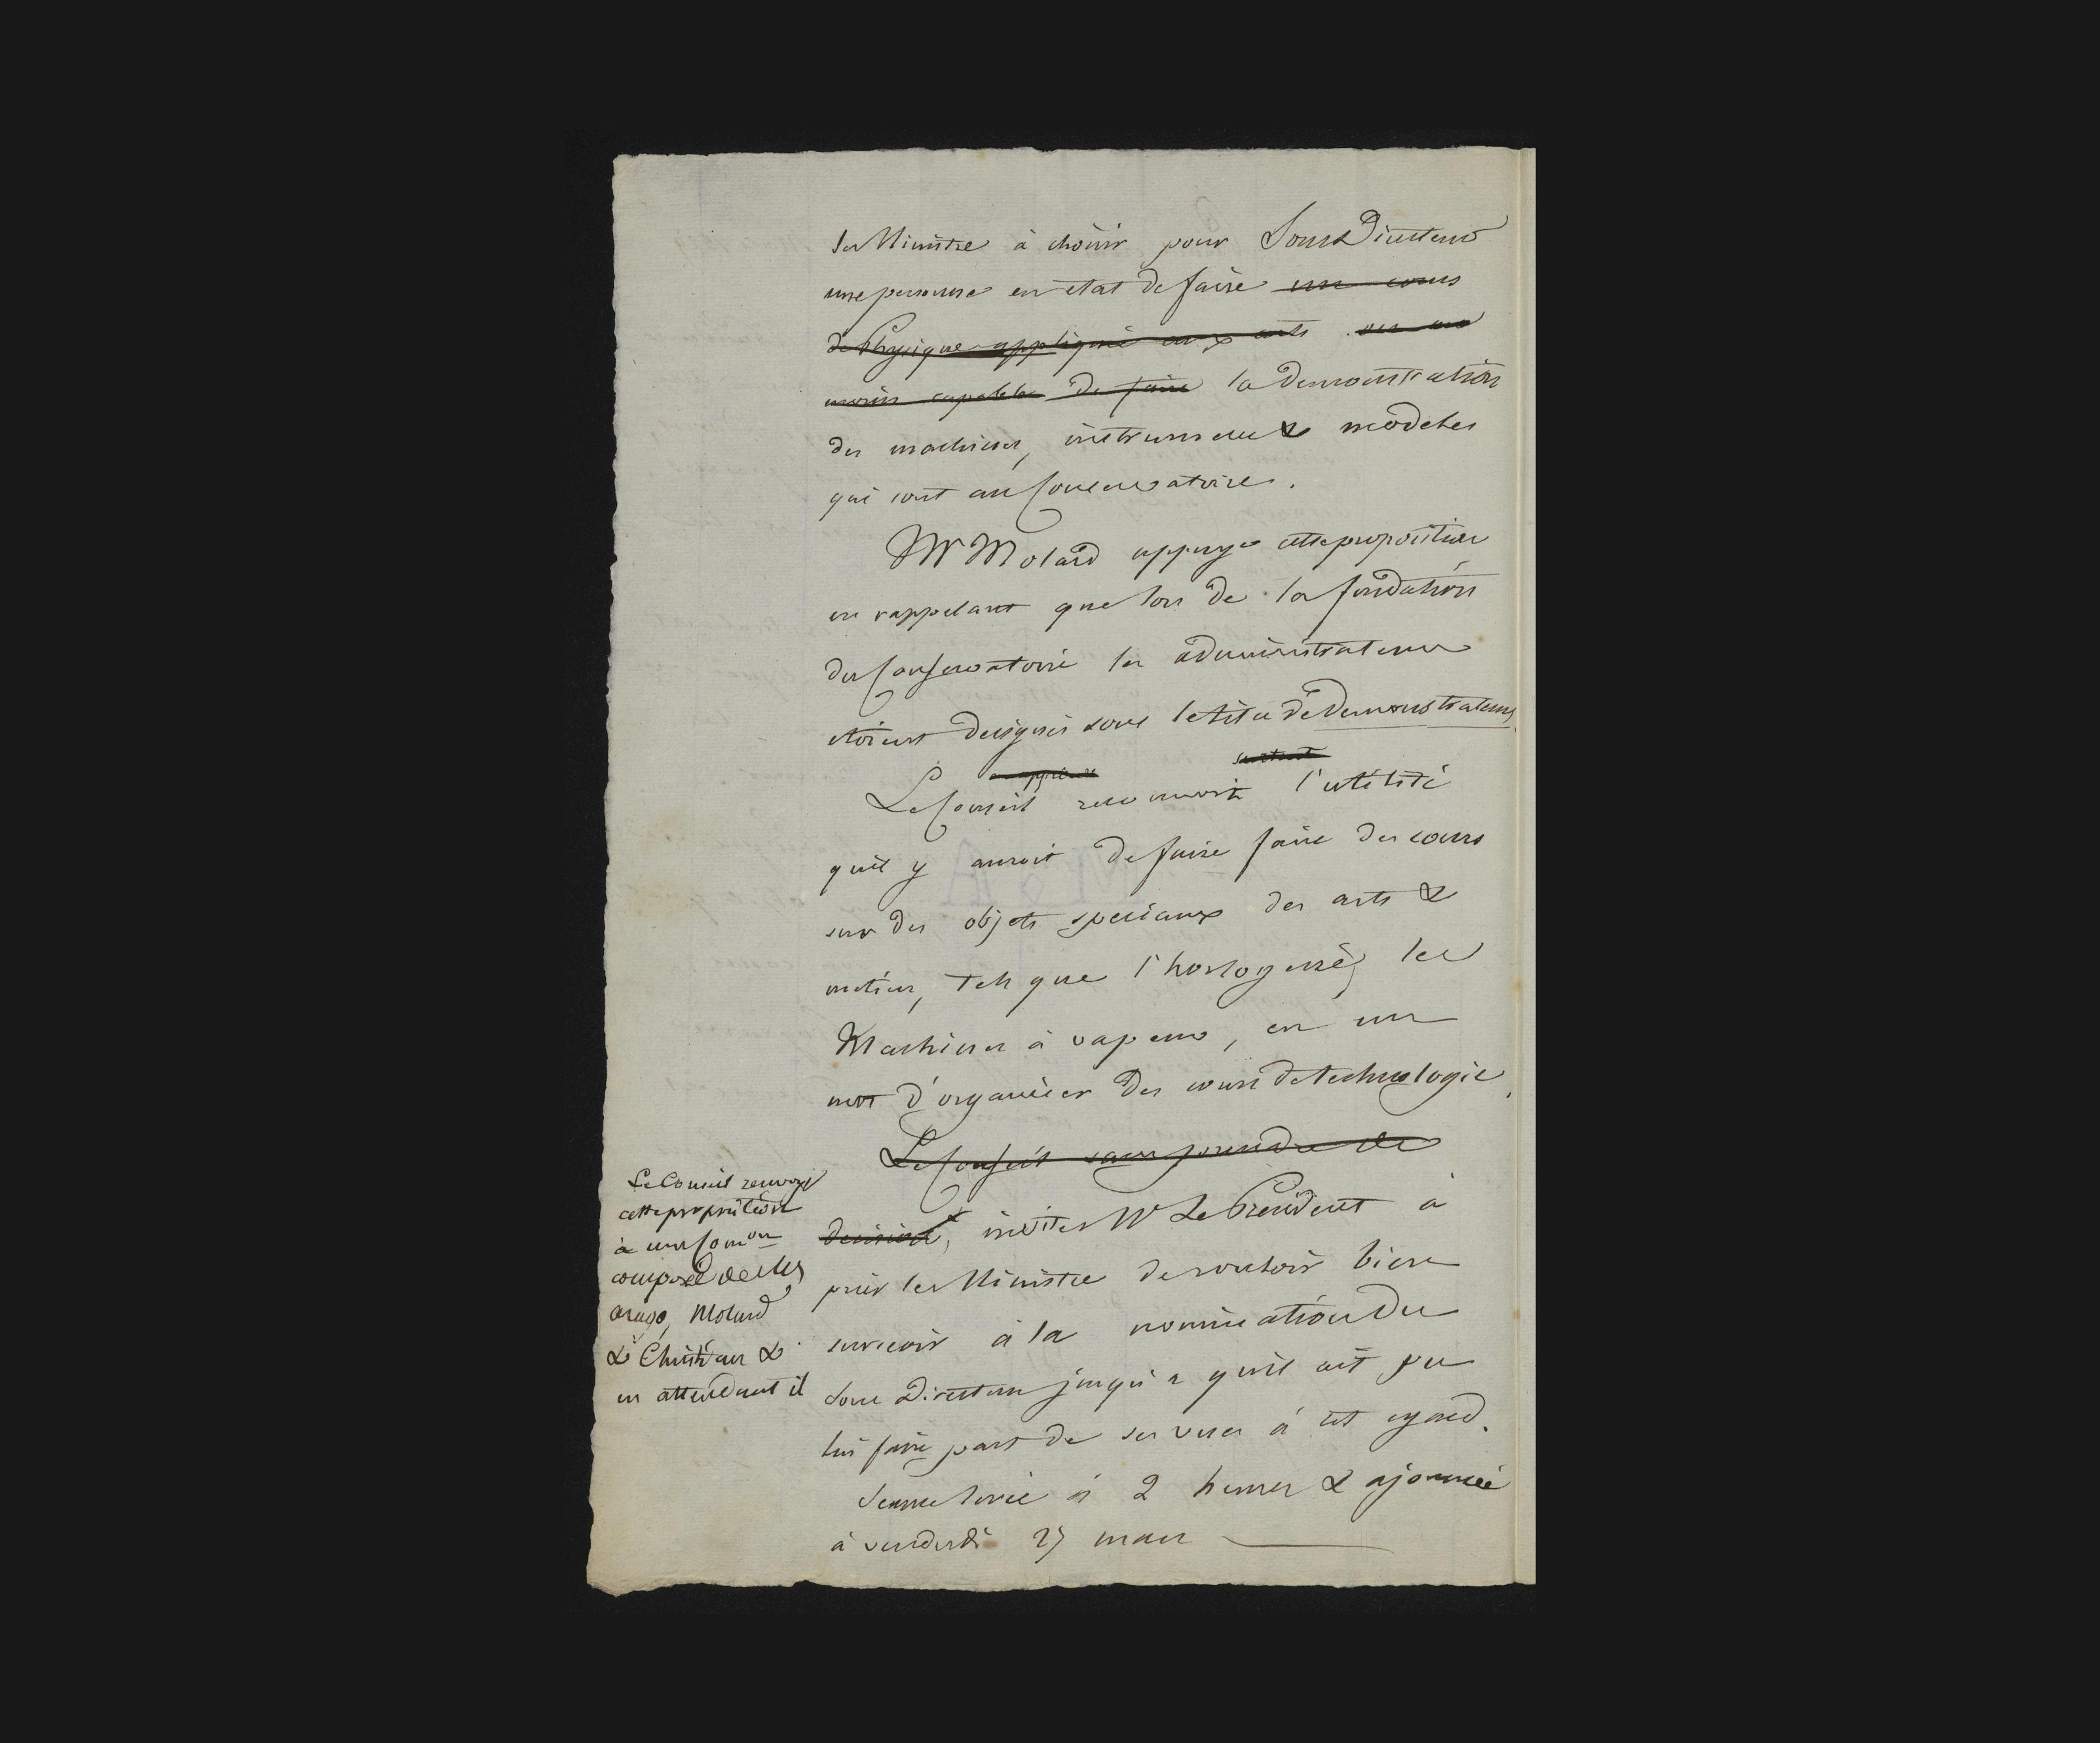 le Ministre à choisir pour Sous Directeur
une personne en etat de faire un cours
de Physique appliquée aux arts ou au
moins capable de faire la demonstration
des machines, instrumens & modeles
qui sont au Conservatoire.
Mr Molard appuye cette proposition
en rappelant que lors de la fondation
du Conservatoire les administrateurs
etoient designés sous le titre de Demonstrateurs
surtout
Le Conseil reconnoit l'utilité
qu'il y auroit de faire faire des cours
sur des objets speciaux des arts &
metiers, tels que l'horlogerie, les
Machines à vapeur, en un
mot d'organiser des cours de technologie.
Le Conseil sans prendre de
Le Conseil renvoye
cette proposition
à une Comon
composée de Mrs
arago, Molard
& Christian &
en attendant il
decision, invite Mr Le President à
prier le Ministre de vouloir bien
surseoir à la nomination du
Sous Directeur jusqu'à qu'il ait pu
lui faire part de ses vues à cet egard.
Seance levée à 2 heures & ajournée
à vendredi 25 mars